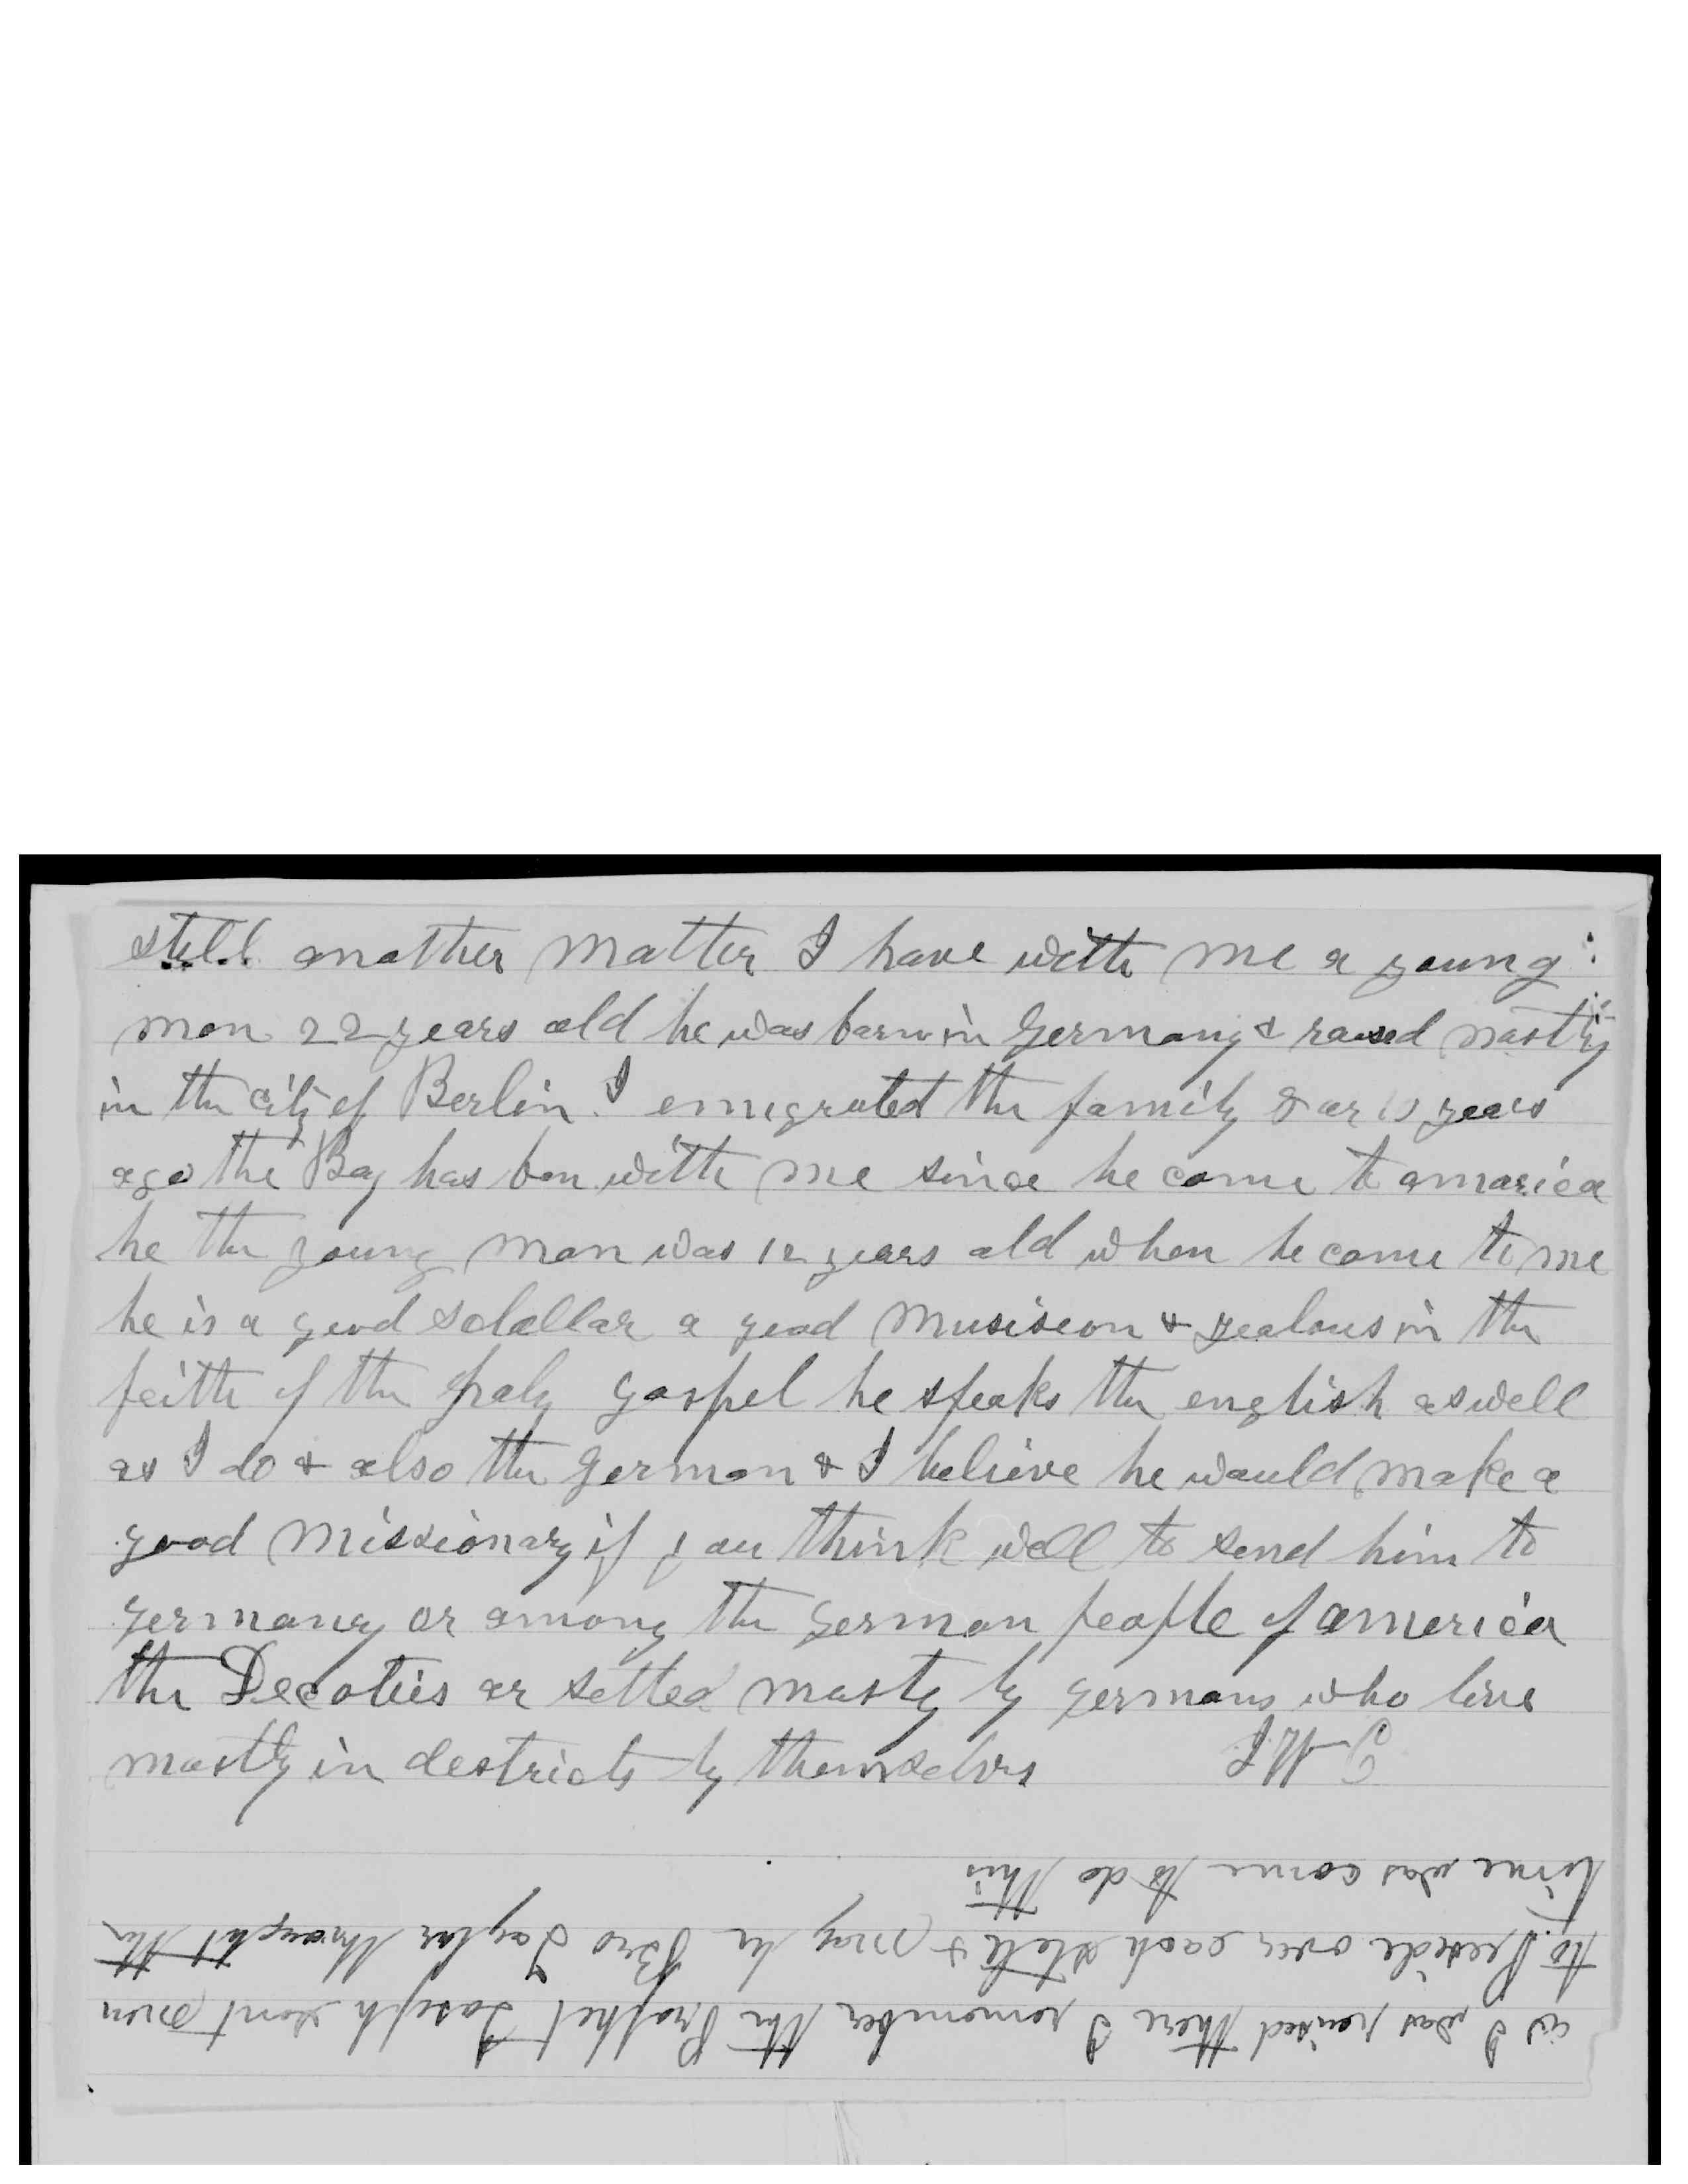 still another matter I have with me a young
man 22 years old he was barn in Germany & raised mostly
in the city of Berlin. I emigrated the family 8 ar 10 years
ago the Boy has ben with me since he come to amarica
he the young man was 12 years old when he come to me
he is a good a good musiseon & zealous in the
feith of the holy gospel he speaks the english as well
as I do & also the german & I believe he would make a
good missionary if you think well to send him to
germany or among the german people of america
the Decoties ar setled mostly by germans who live
mostly in destricts by themselvs
as I was raised there I remember the Prophet Joseph sent men
to Preside over each state & may be Bro Taylor thought the
time was come to do this